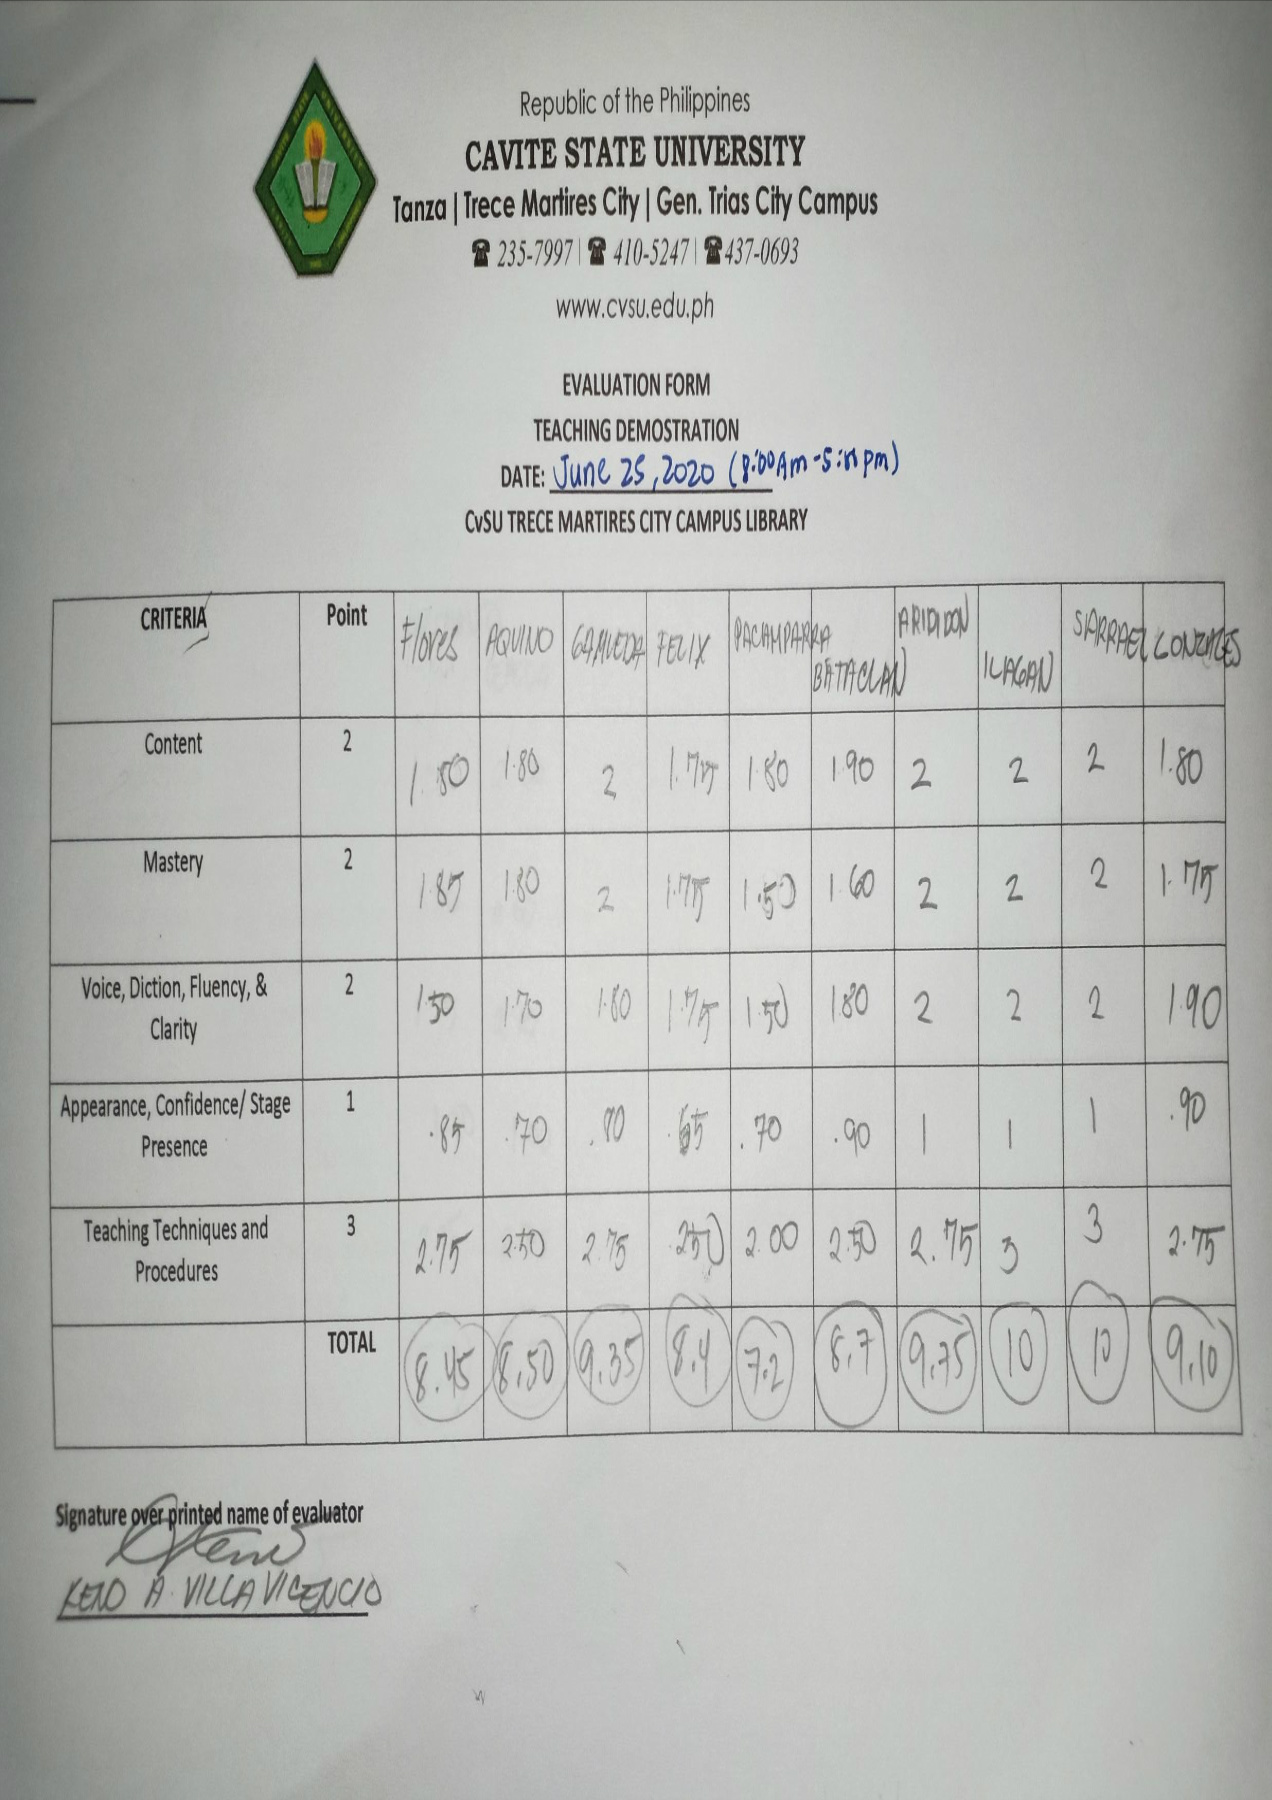 Republic of the Philippines
CAVITE STATE UNIVERSITY
Tanza | Trece Martires City | Gen. Trias City Campus
☎ 235-7997 | ☎ 410-5247 | ☎437-0693
www.cvsu.edu.ph
EVALUATION FORM
TEACHING DEMOSTRATION
DATE: June 25, 2020 (8:00Am -5:00pm)
CvSU TRECE MARTIRES CITY CAMPUS LIBRARY
CRITERIA Point Flores AQUINO GAMUEDA FELIX PACAMPARRA BATACLAN ARIDIDON ILAGAN SIARRAEZ GONZALES
Content 2 1.80 2 1.75 1.80 1.90 2 2 2 1.80
Mastery 2 1.85 1.80 2 1.75 1.50 1.60 2 2 2 1.75
Voice, Diction, Fluency, & Clarity 2 1.50 1.70 1.80 1.75 1.50 1.80 2 2 2 1.90
Appearance, Confidence/ Stage Presence 1 .85 .70 .80 .65 .70 .90 1 1 1 .90
Teaching Techniques and Procedures 3 2.75 2.50 2.75 2.50 2.00 2.50 2.75 3 3 2.75
TOTAL 8.45 8.50 9.35 8.4 7.2 8.7 9.75 10 10 9.10
Signature over printed name of evaluator
KENO A. VILLAVICENCIO